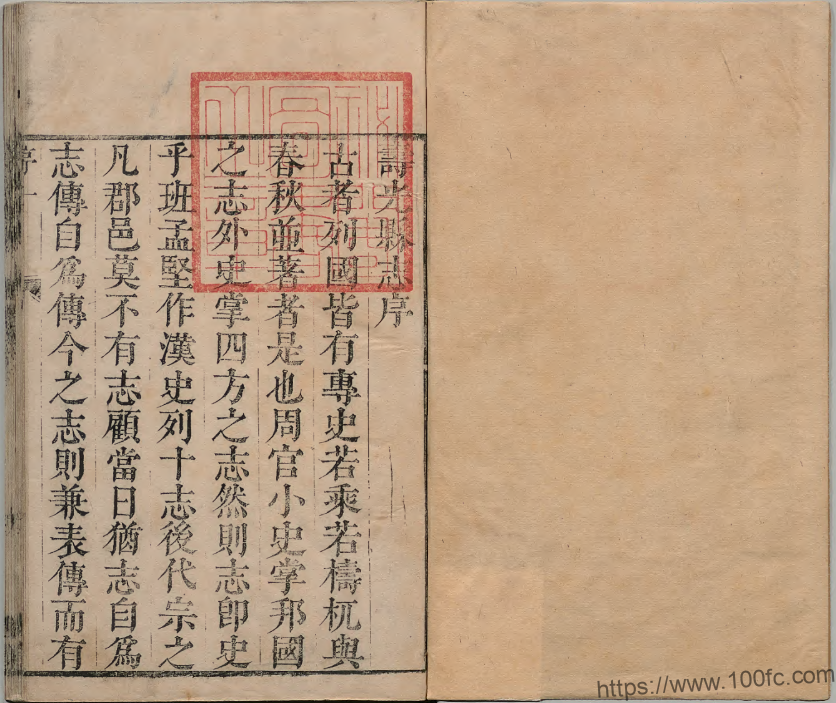 壽光縣志序
古者列國皆有專史若乘若檮杌與
春秋並著者是也周官小史掌邦國
之志外史掌四方之志然則志卽史
乎班孟堅作漢史列十志後代宗之
凡郡邑莫不有志顧當日猶志自爲
志傳自爲傳今之志則兼表傳而有
序一
https://www.100fc.com